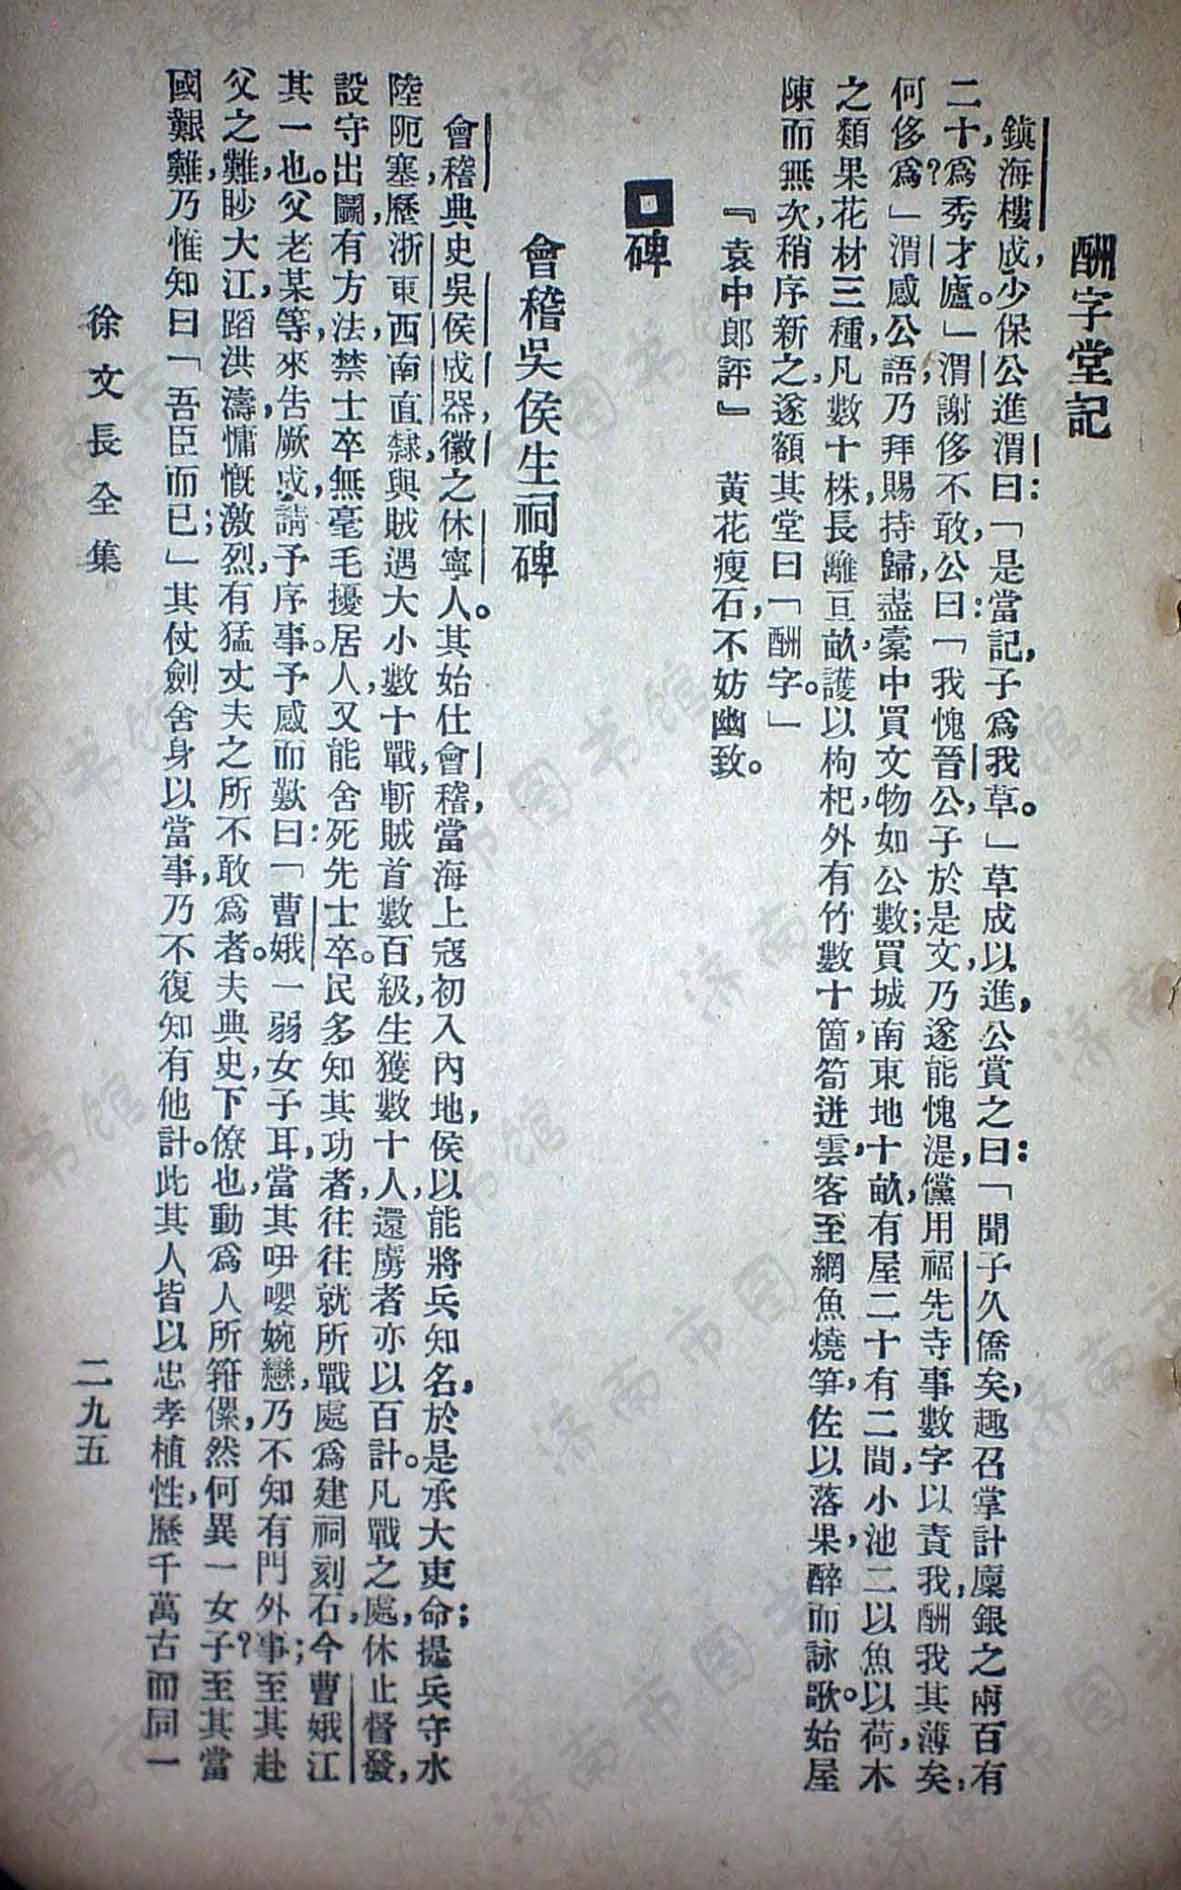 酬字堂記
鎮海樓成，少保公進渭曰：「是當記，子爲我草。」草成以進，公賞之曰：「聞子久僑矣，趣召掌計廩銀之兩百有
二十，爲秀才廬」渭謝侈不敢，公曰：「我愧晉公，子於是文乃遂能愧湜，儻用福先寺事數字以責我酬，我其薄矣，
何侈爲？」渭感公語，乃拜賜持歸，盡橐中買文物如公數；買城南東地十畝，有屋二十有二間，小池二，以魚以荷，木
之類果花材三種，凡數十株，長籬亘畝，護以枸杞，外有竹數十箇，筍迸雲，客至網魚燒筍，佐以落果，醉而詠歌。始屋
陳而無次，稍序新之，遂額其堂曰「酬字。」
『袁中郎評』　黃花瘦石，不妨幽致。
碑
會稽吳侯生祠碑
會稽典史吳侯成器，徽之休寧人。其始仕會稽，當海上寇初入內地，侯以能將兵知名，於是承大吏命；提兵守水
陸阨塞，歷浙東西南直隸與賊遇大小數十戰，斬賊首數百級，生獲數十人，還虜者亦以百計。凡戰之處，休止督發，
設守出鬭，有方法，禁士卒無毫毛擾居人，又能舍死先士卒。民多知其功者，往往就所戰處爲建祠刻石，今曹娥江
其一也。父老某等，來告厥成，請予序事。予感而歎曰：「曹娥一弱女子耳，當其咿嚶婉戀，乃不知有門外事；至其赴
父之難，眇大江，蹈洪濤，慷慨激烈，有猛丈夫之所不敢爲者。夫典史，下僚也，動爲人所箝，儽然何異一女子？至其當
國艱難，乃惟知曰「吾臣而已；」其仗劍舍身以當事，乃不復知有他計。此其人皆以忠孝植性，歷千萬古而同一
徐文長全集
二九五
济南市图书馆